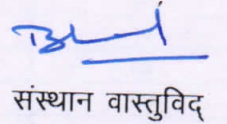 संस्थान वास्तुविद्